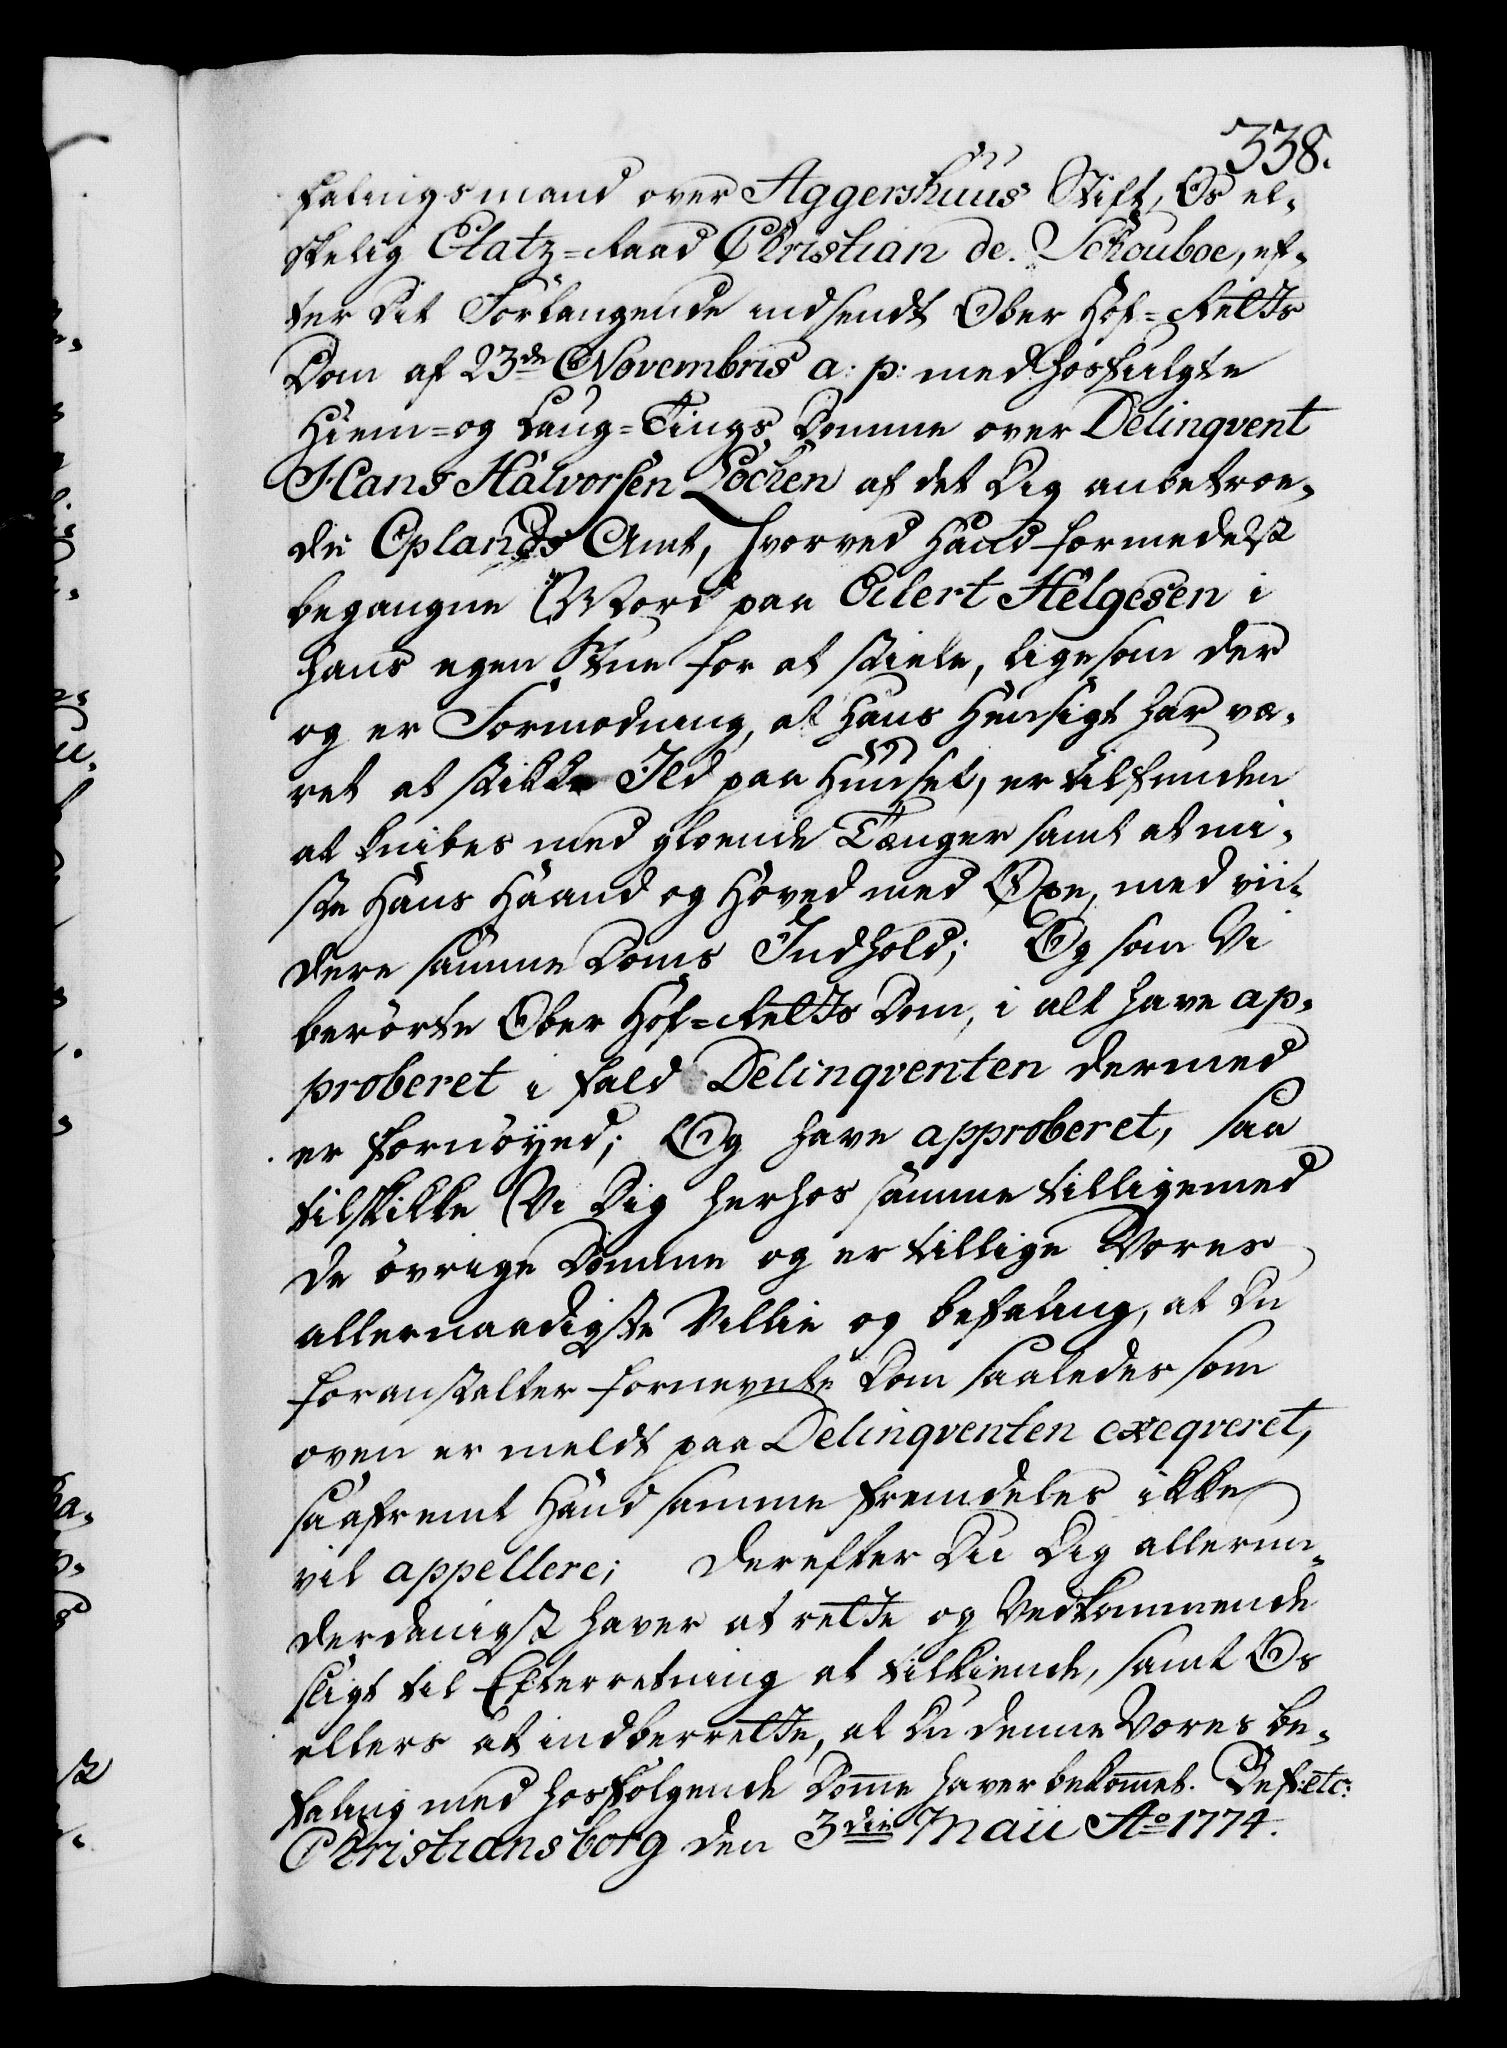 338.
falingsmand over Aggershuus Stift, Os el-
skelig Etatz-Raad Christian de Schouboe, ef-
ter dit Forlangende indsendt Ober Hof-Retts
Dom af 23de Novembris a: p: med hosfulgte
Hiem- og Laug-Tings Domme over Delinqvent
Hans Halvorsen Lochen af det Dig anbetroe-
de Oplands Amt, hvorved hand formedelst
begangne Mord paa Eilert Helgesen i
hans egen Stue for at stiele, ligesom der
og er Formodning, at hans Hensigt har væ-
ret at stikke Ild paa Huuset, er tilfunden
at knibes med gloende Tænger samt at mi-
ste Hans Haand og Hoved med Øxe, med vii-
dere samme Doms Indhold; Og som Vi
berörte Ober Hof-Retts Dom, i alt have ap-
proberet i fald Delinqventen dermed
er fornöyed; Og have approberet, saa
tilskikke Vi Dig herhos samme tilligemed
de övrige Domme og er tillige Vores
allernaadigste Villie og befaling, at Du
foranstalter fornevnte Dom saaledes som
oven er meldt paa Delinqventen exeqveret,
saafremt Hand samme fremdeles ikke
vil appellere; Derefter Du Dig allerun-
derdanigst haver at rette og Vedkommende
sligt til Efterretning at tilkiende, samt Os
ellers at indberette, at Du denne Vores be-
faling med hosfölgende Domme haver bekommet. Bef: etc:
Christiansborg den 3die Maii Ao 1774.